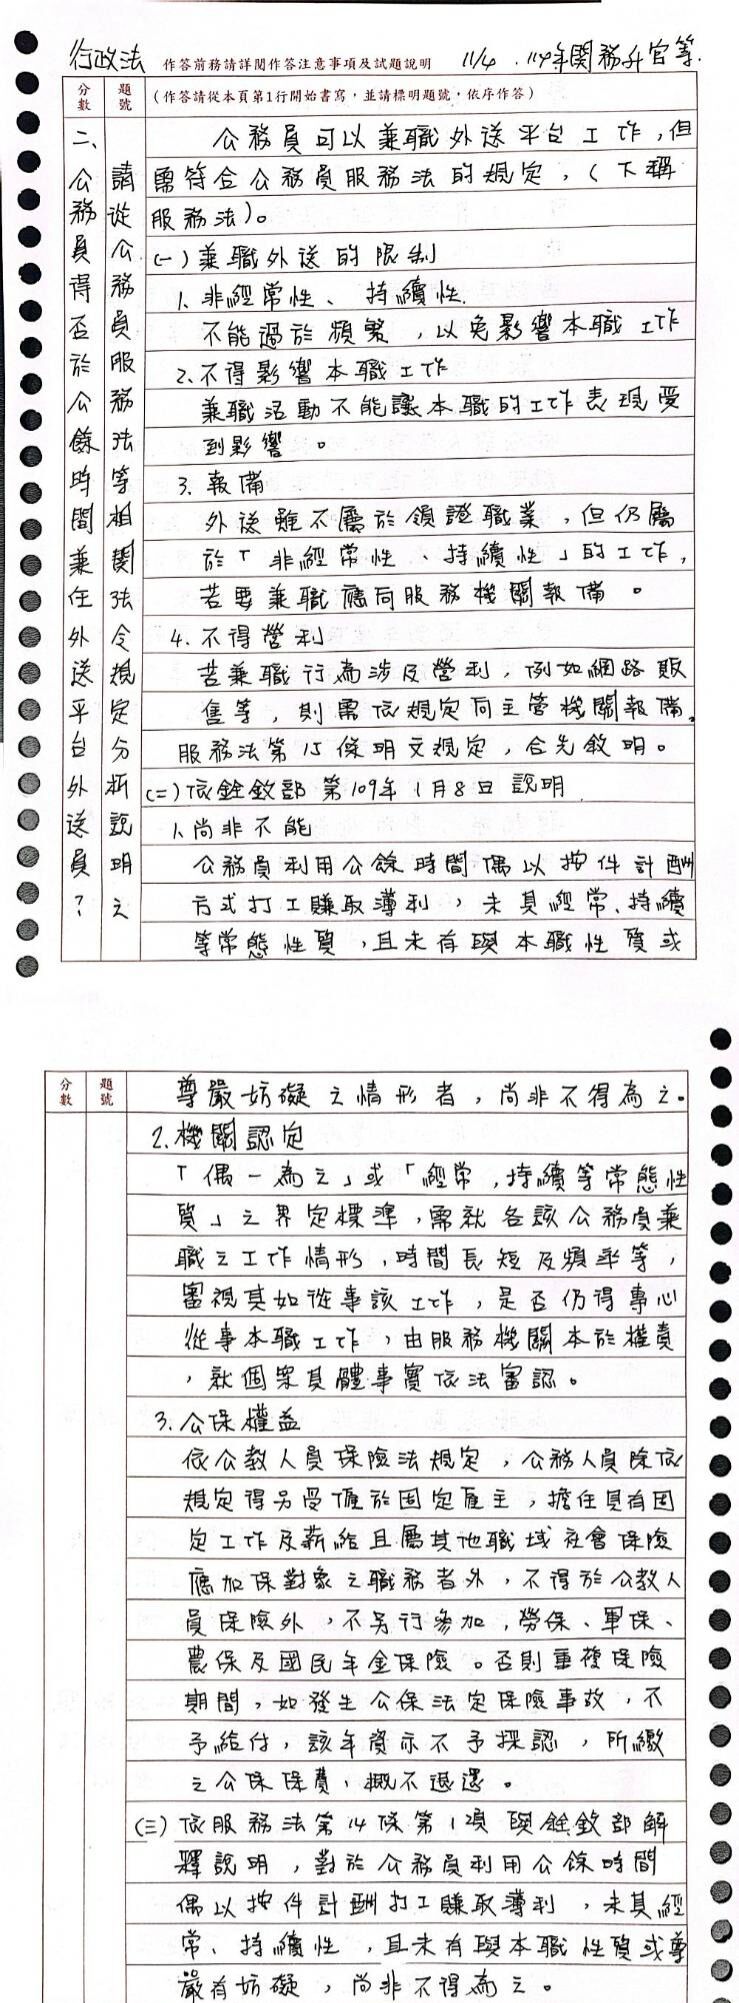 行政法 作答前務請詳閱作答注意事項及試題說明 11/4 .114年関務升官等.
分數 題號 (作答請從本頁第1行開始書寫,並請標明題號,依序作答)
二、公務員得否於公餘時間兼任外送平台外送員?
請從公務員服務法等相関法令規定分析說明之
公務員可以兼職外送平台工作,但
需符合公務員服務法的規定,(下稱
服務法)。
(一)兼職外送的限制
1、非經常性、持續性.
不能過於頻繁,以免影響本職工作
2、不得影響本職工作
兼職活動不能讓本職的工作表現受
到影響。
3、報備
外送雖不屬於領證職業,但仍屬
於「非經常性、持續性」的工作,
若要兼職應向服務機關報備。
4、不得營利
若兼職行為涉及營利,例如網路販
售等,則需依規定向主管機關報備。
服務法第15條明文規定,合先敘明。
(二)依銓敘部第109年1月8日說明
1、尚非不能
公務員利用公餘時間偶以按件計酬
方式打工賺取薄利,未具經常、持續
等常態性質,且未有與本職性質或
分數 題號
尊嚴妨礙之情形者,尚非不得為之。
2、機關認定
「偶一為之」或「經常,持續等常態性
質」之界定標準,需就各該公務員兼
職之工作情形,時間長短及頻率等,
審視其如從事該工作,是否仍得專心
從事本職工作,由服務機關本於權責
,就個案具體事實依法審認。
3、公保權益
依公教人員保險法規定,公務人員除依
規定得另受僱於固定雇主,擔任具有固
定工作及薪給且屬其他職域社會保險
應加保對象之職務者外,不得於公教人
員保險外,不另行參加,勞保、軍保、
農保及國民年金保險。否則重複保險
期間,如發生公保法定保險事故,不
予給付,該年資亦不予採認,所繳
之公保保費,概不退還。
(三)依服務法第14條第1項與銓敘部解
釋說明,對於公務員利用公餘時間
偶以按件計酬打工賺取薄利,未具經
常、持續性,且未有與本職性質或尊
嚴有妨礙,尚非不得為之。